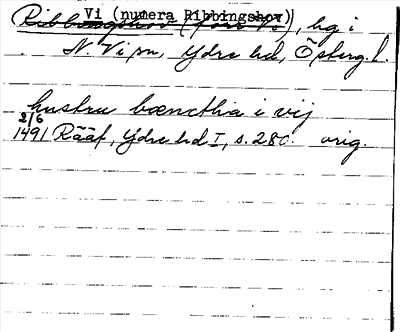 Vi (numera Ribbingshov)
Ribbingshov (förr Vi), hg i
N. Vi sn, Ydre hd, Österg. l.
hustru bæncthia i vij
2/6
1491 Rääf, Ydre hd I, s. 280. orig.